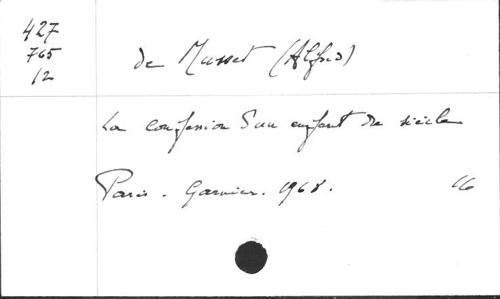 427
765
12
de Musset (Alfred)
La confession d'un enfant de siècle
Paris. Garnier. 1968.
16